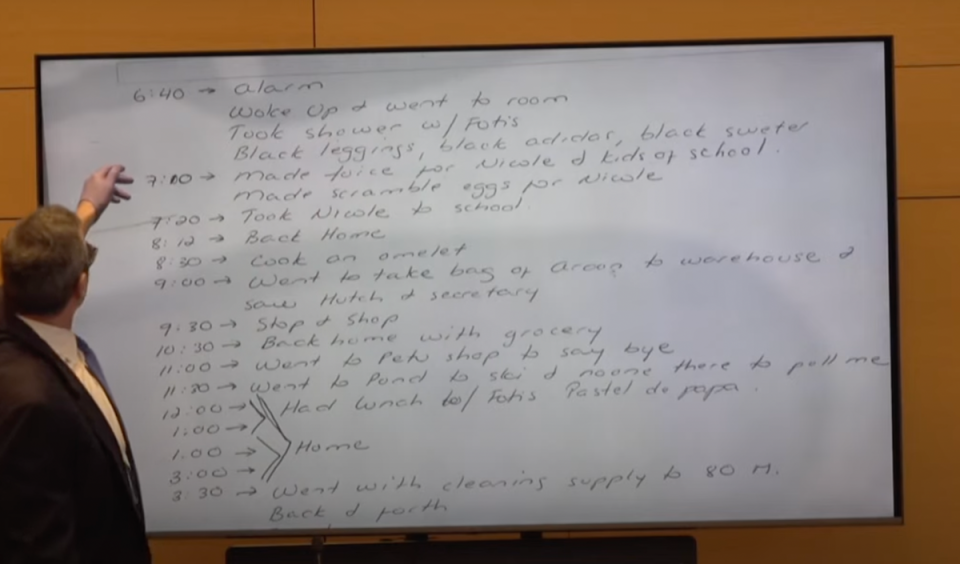 6:40 → alarm
Woke Up & went to room
Took shower w/ Fotis
Black leggings, black adidas, black sweter
7:00 → Made juice for Nicole & kids of school.
Made scramble eggs for Nicole
7:20 → Took Nicole to school.
8:12 → Back Home
8:30 → Cook an omelet
9:00 → Went to take bag of to warehouse &
saw Hutch & secretary
9:30 → Stop & Shop
10:30 → Back home with grocery
11:00 → Went to Petu shop to say bye
11:30 → Went to Pond to ski & noone there to pull me
12:00 → Had lunch w/ Fotis Pastel de papa.
1:00 →
1:00 → Home
3:00 →
3:30 → Went with cleaning supply to 80 M.
Back & forth